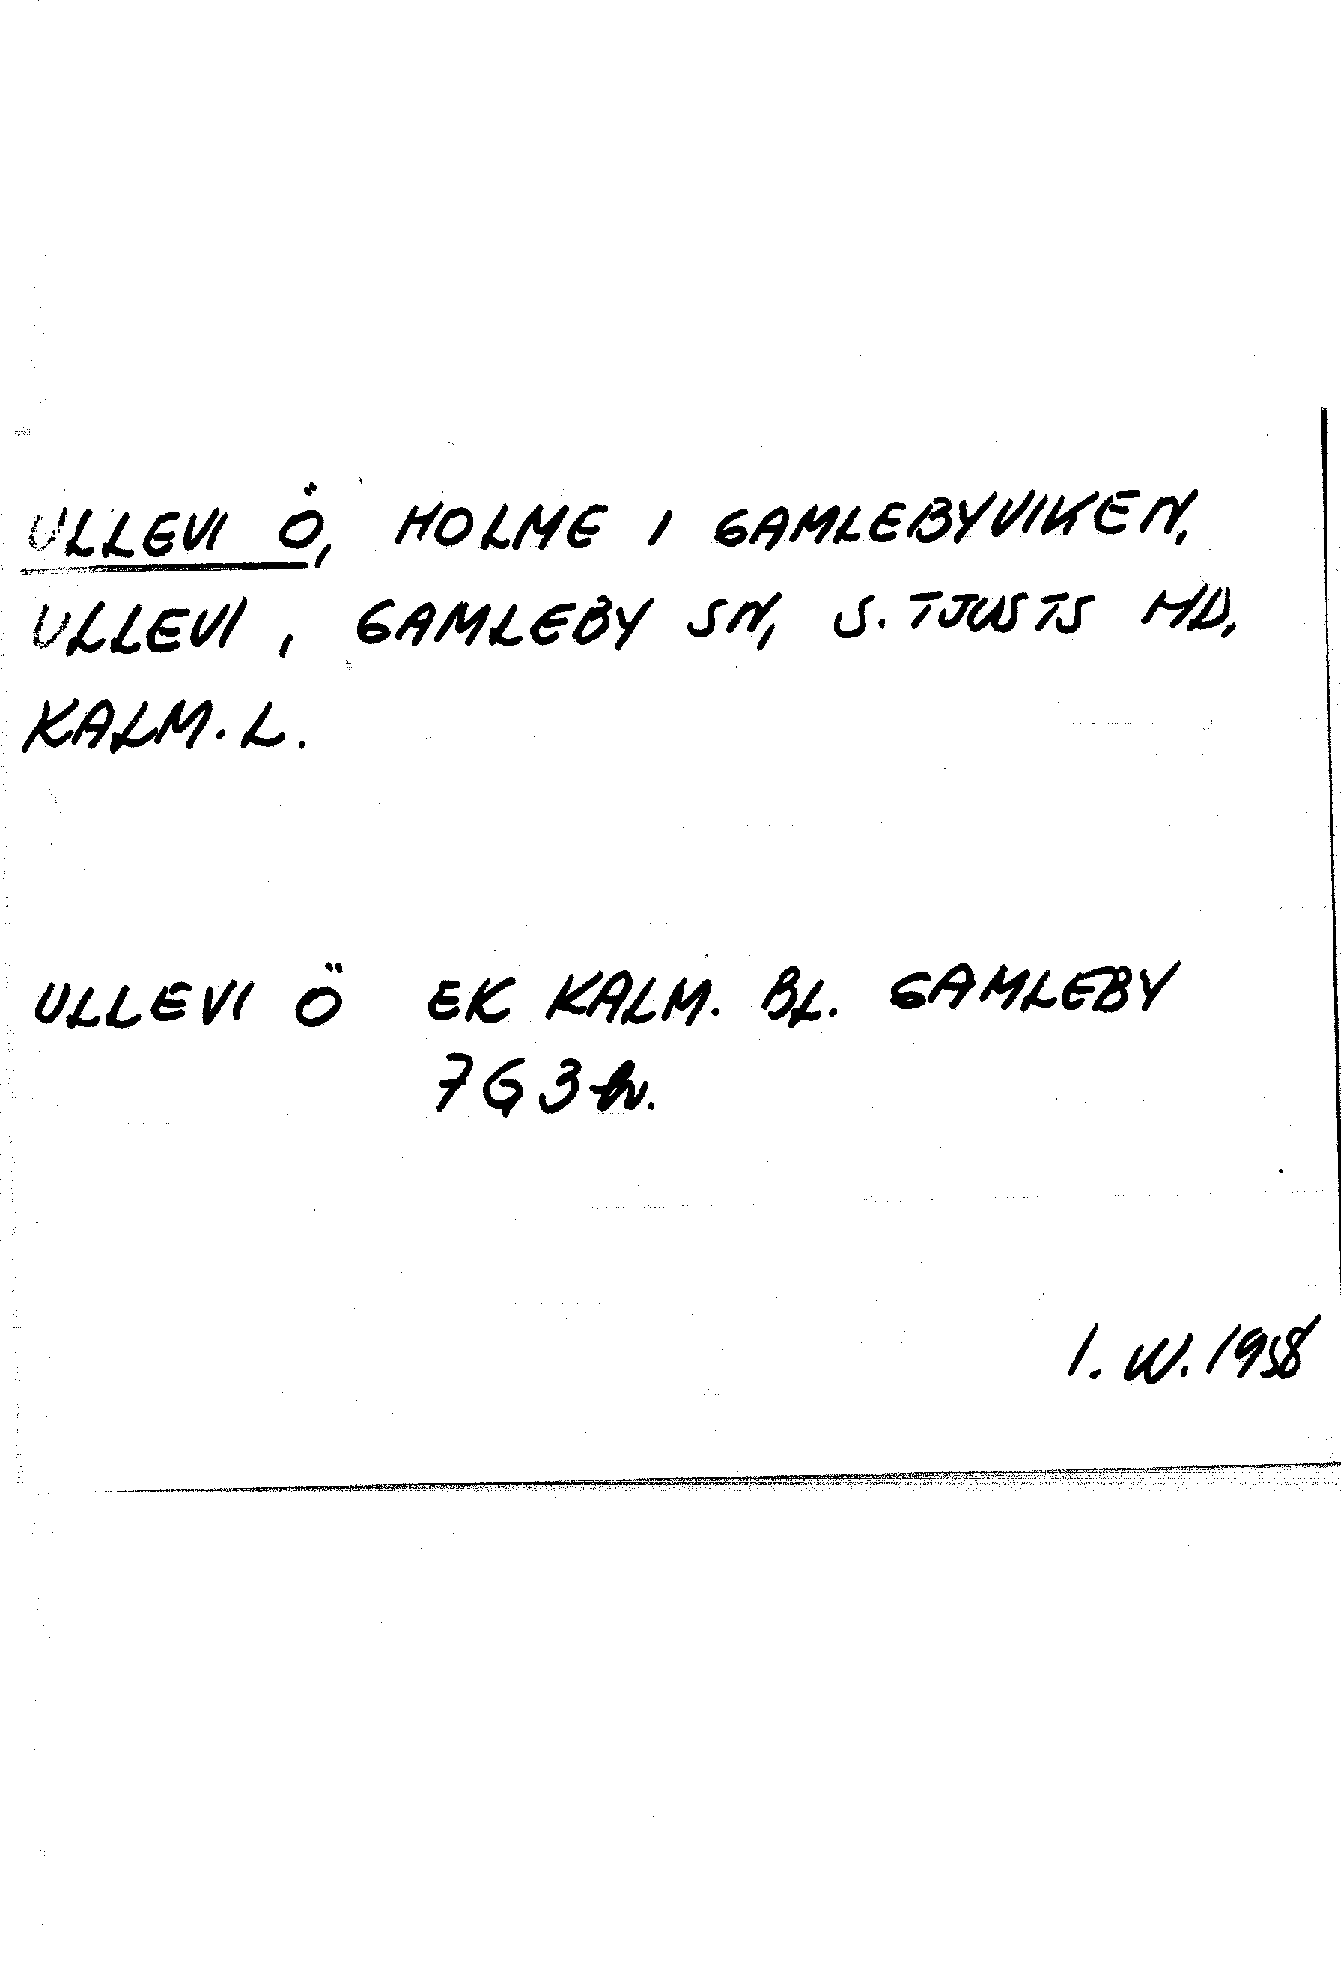 ULLEVI Ö, HOLME I GAMLEBYVIKEN,
ULLEVI, GAMLEBY SN, S. TJUSTS HD,
KALM. L.
ULLEVI Ö EK KALM. BL. GAMLEBY
7G3h.
I. W. 1958